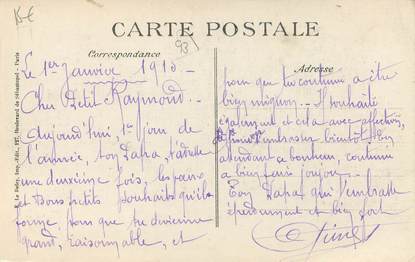 15 €
CARTE POSTALE
Correspondance
Adresse
93
Le 1er Janvier 1910.
Cher Petit Raymond.
Aujourd'hui 1er jour de
l'année, ton Papa, t'adresse
une deuxième fois, les vœux
et bons petits souhaits qu'il
forme pour que tu devienne
grand, raisonnable, et
pour que tu continu a être
bien mignon. Il souhaite
également et cela avec affection,
t'embrasser bientôt. En
attendant ce bonheur, continue
a bien faire toujours.
Ton Papa qui t'embrasse
éperdument et bien fort
Boulevard de Sébastopol - Paris